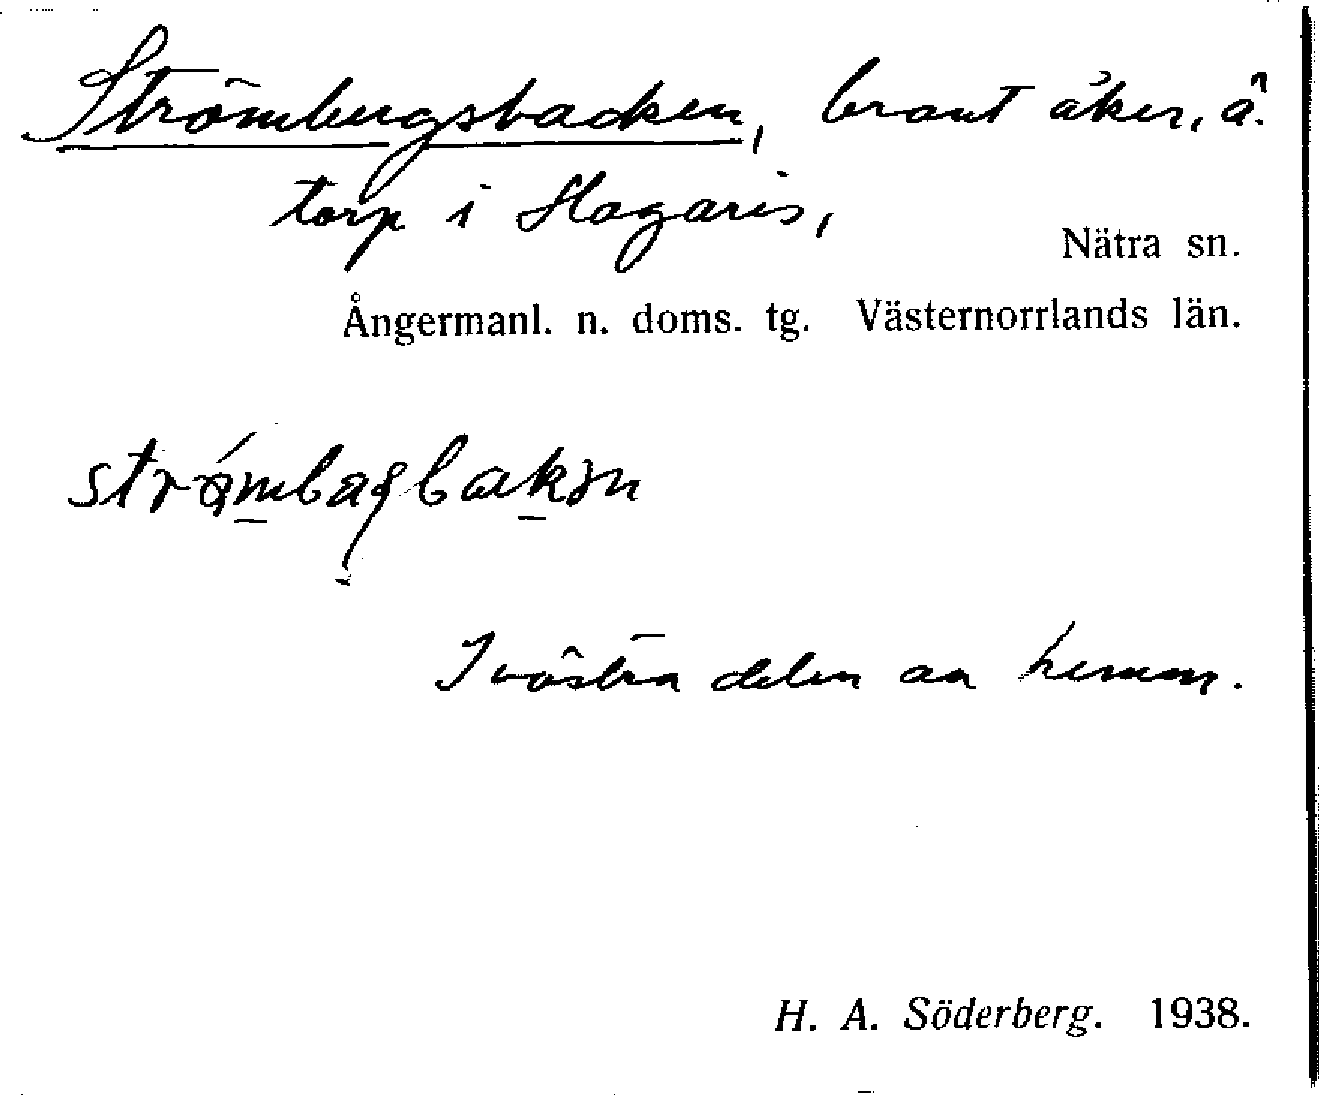 Strömbergsbacken, brant åker, å.
torp i Hagaris,
Nätra sn.
Ångermanl. n. doms. tg. Västernorrlands län.
I västra delen av hemm.
H. A. Söderberg. 1938.